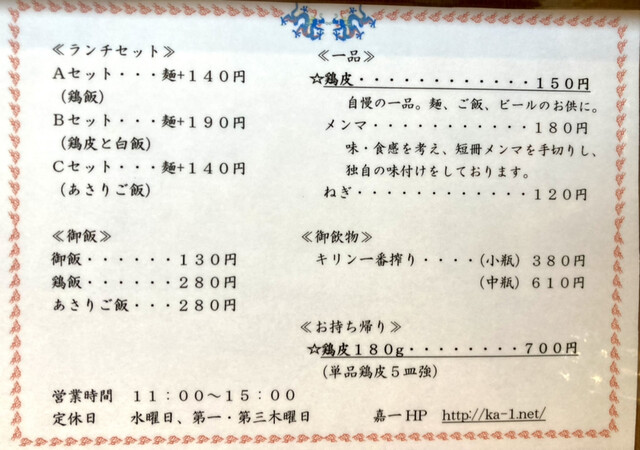 ≪ランチセット≫
Aセット・・・麺+140円
(鶏飯)
Bセット・・・麺+190円
(鶏皮と白飯)
Cセット・・・麺+140円
(あさりご飯)
≪御飯≫
御飯・・・・・・130円
鶏飯・・・・・・280円
あさりご飯・・・280円
≪一品≫
☆鶏皮・・・・・・・・・・・・150円
自慢の一品。麺、ご飯、ビールのお供に。
メンマ・・・・・・・・・・・180円
味・食感を考え、短冊メンマを手切りし、
独自の味付けをしております。
ねぎ・・・・・・・・・・・・120円
≪御飲物≫
キリン一番搾り・・・・(小瓶) 380円
(中瓶) 610円
≪お持ち帰り≫
☆鶏皮180g・・・・・・・・700円
(単品鶏皮5皿強)
営業時間 11:00~15:00
定休日 水曜日、第一・第三木曜日 嘉一HP http://ka-1.net/